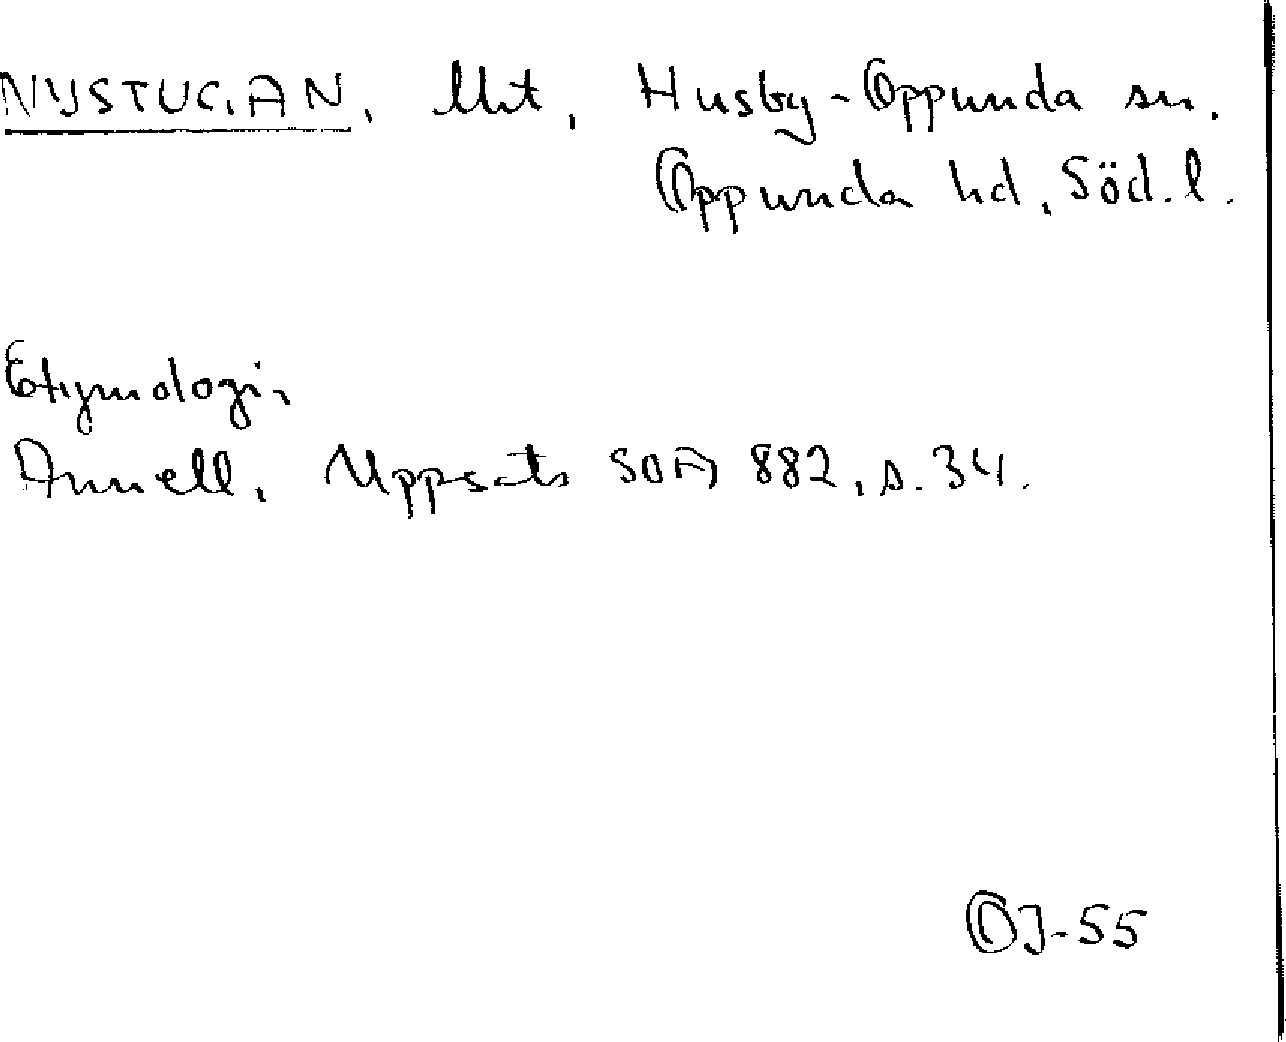 NYSTUGAN, lht, Husby-Oppunda sn.
Oppunda hd, Södl.
Etymologi,
Annell, Uppsats SOFA 882, s. 34.
OJ-55